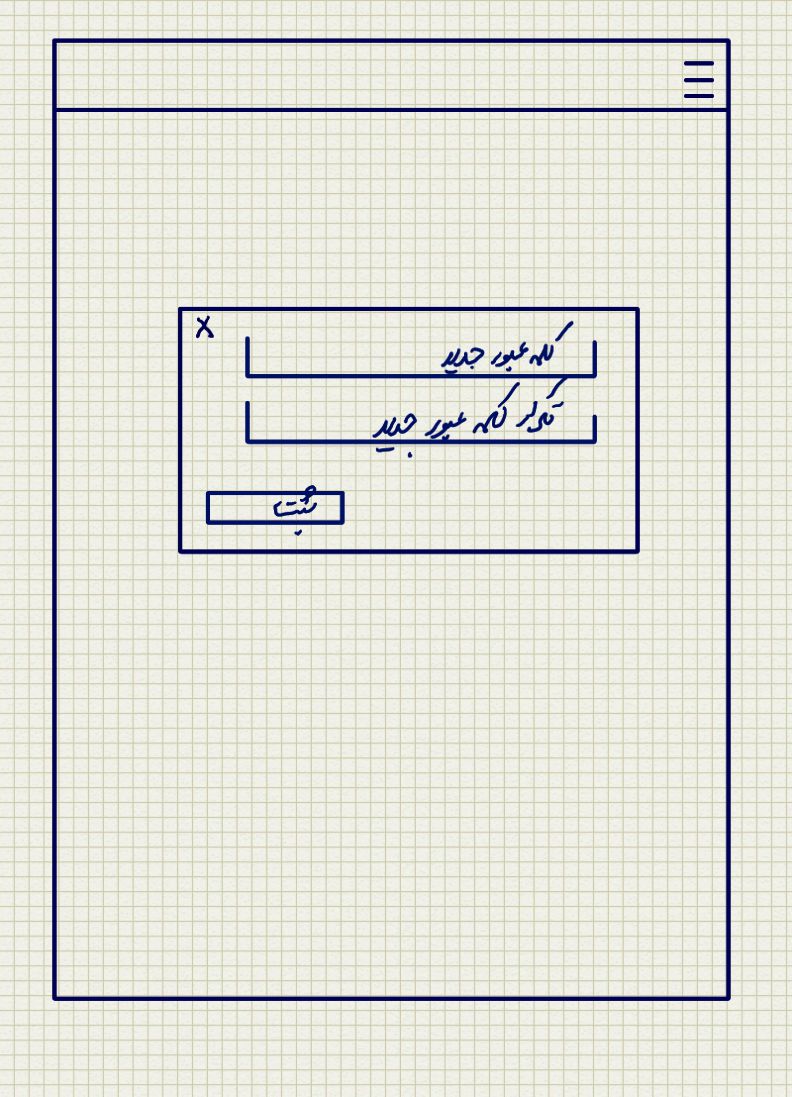 X
کلمه عبور جدید
تکرار کلمه عبور جدید
ثبت